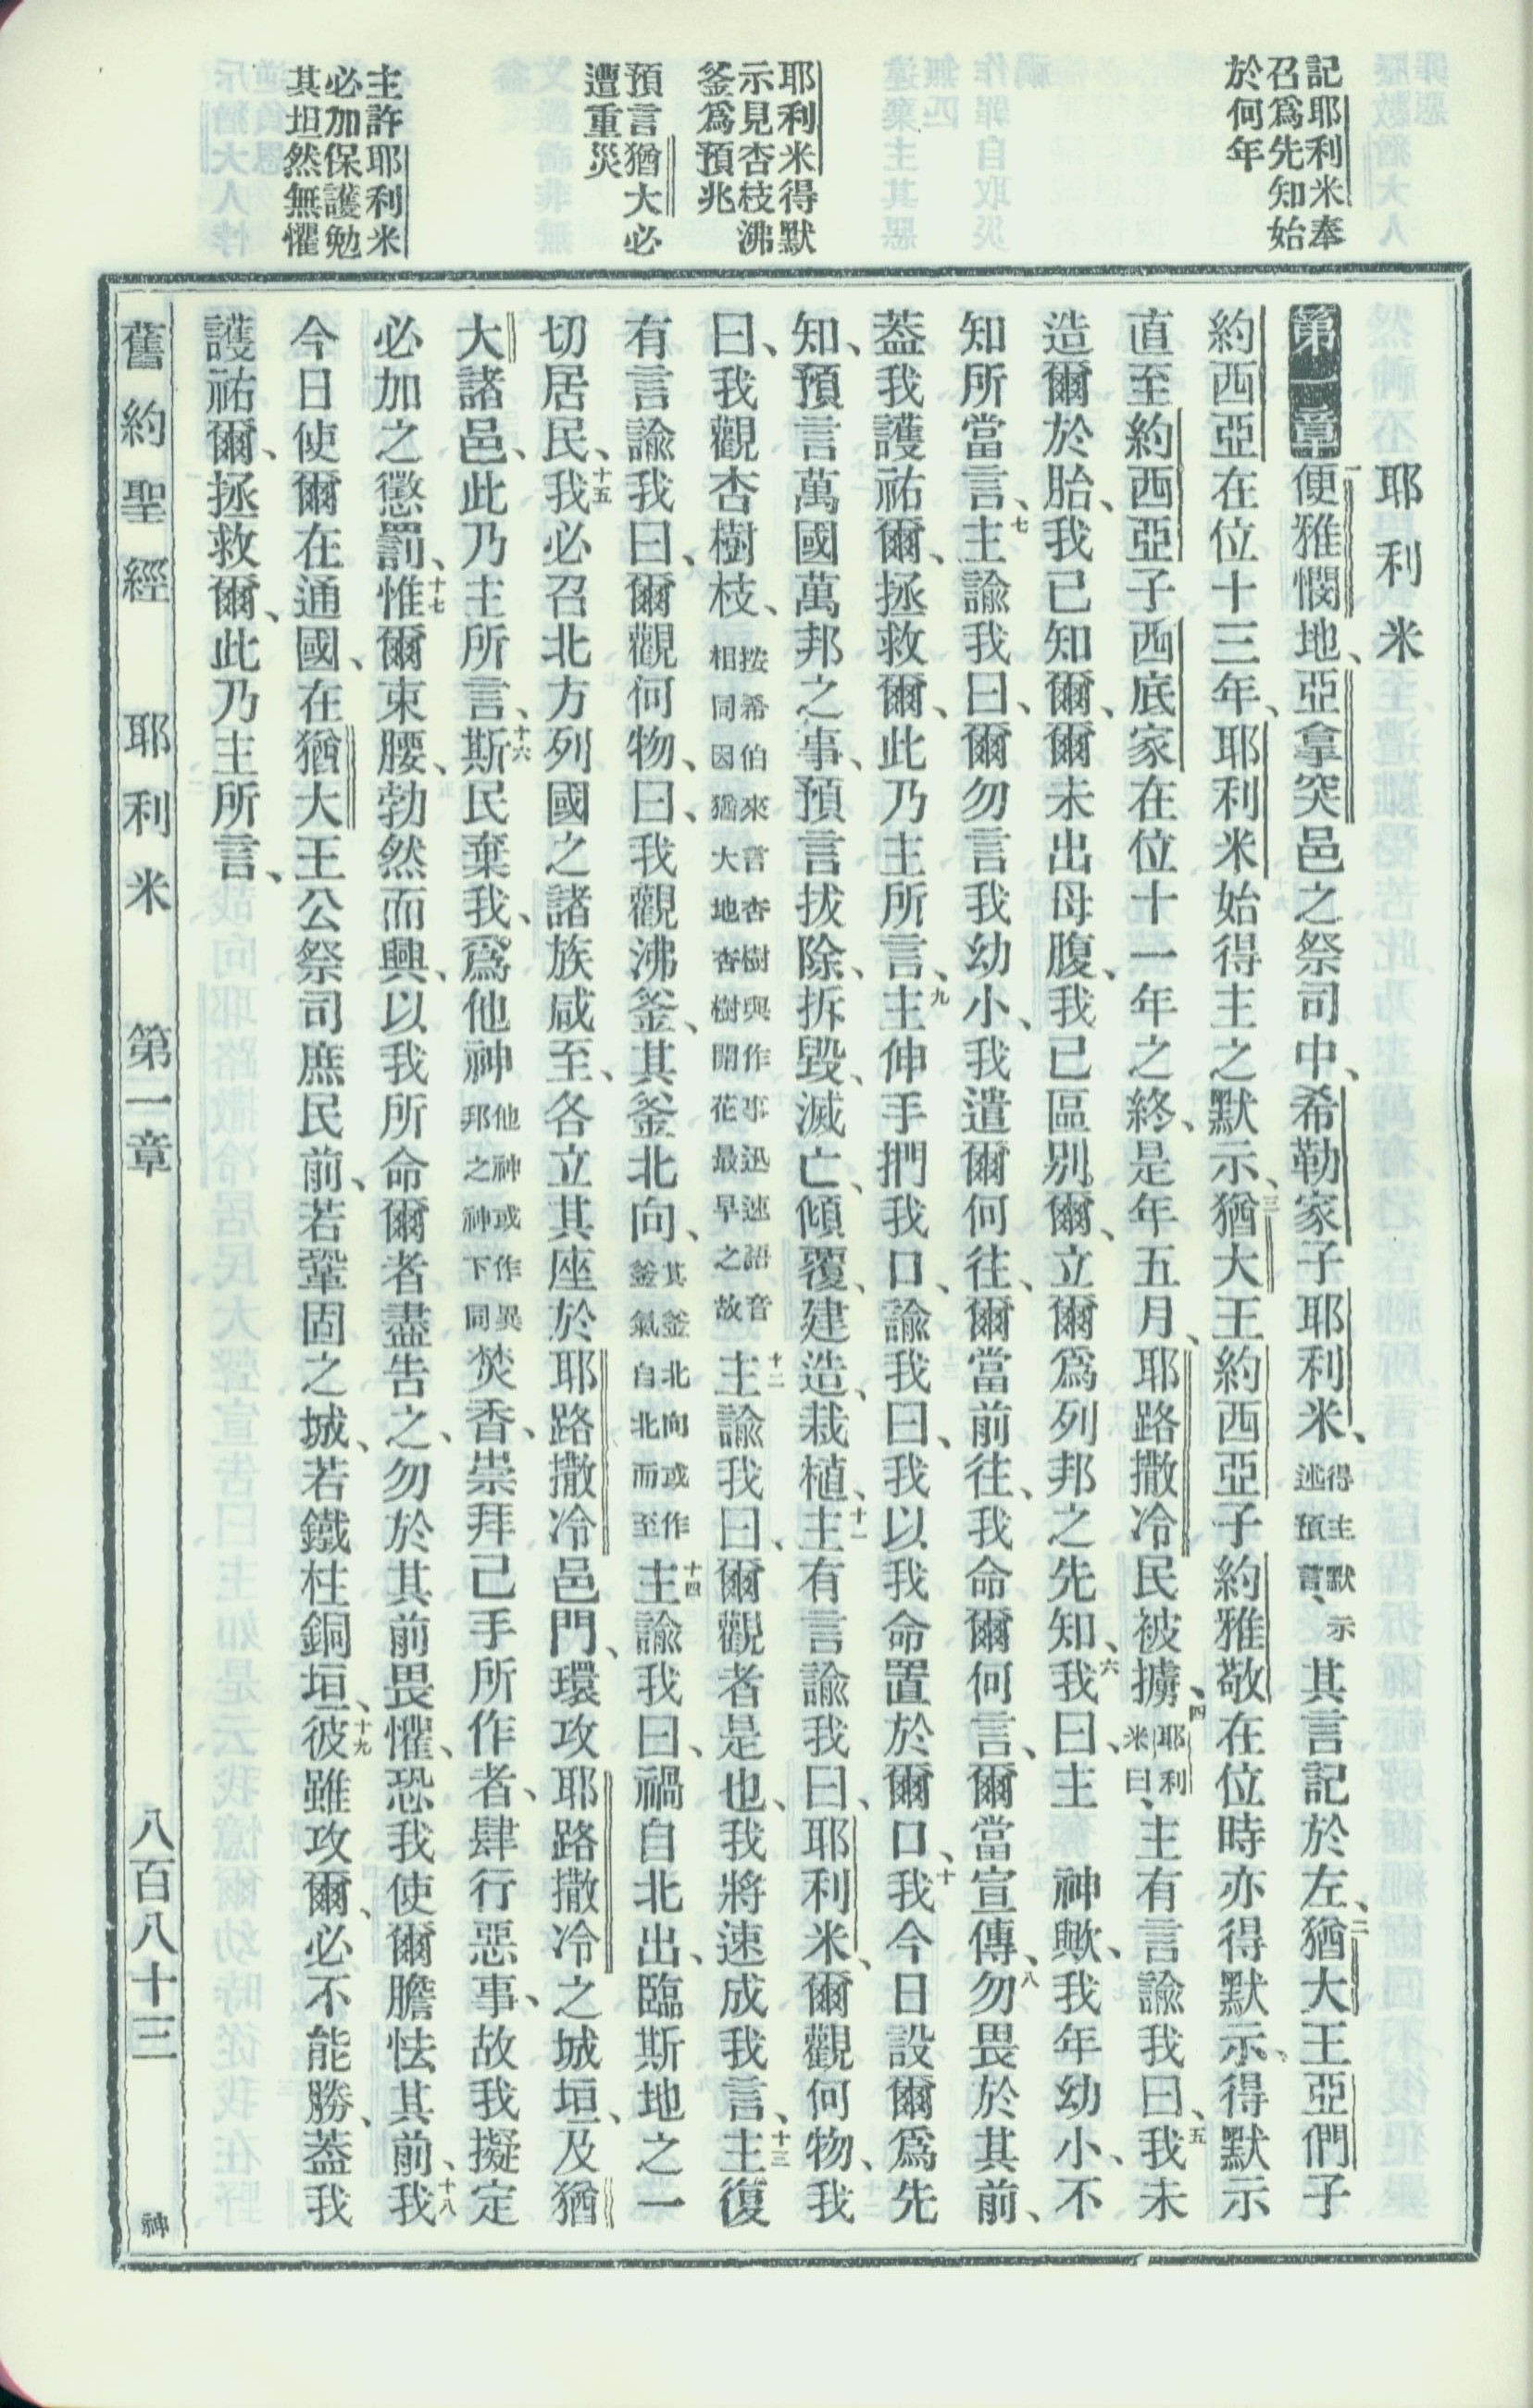 記耶利米奉
召爲先知始
於何年
耶利米得默
示見杏枝沸
釜爲預兆
預言猶大必
遭重災
主許耶利米
必加保護勉
其坦然無懼
耶利米
第一章 一便雅憫地、亞拿突邑之祭司中、希勒家子耶利米、得主默示述預言、其言記於左、二猶大王亞們子
約西亞在位十三年、耶利米始得主之默示、三猶大王約西亞子約雅敬在位時亦得默示、得默示
直至約西亞子西底家在位十一年之終、是年五月、耶路撒冷民被擄、四耶利米曰、主有言諭我曰、五我未
造爾於胎、我已知爾、爾未出母腹、我已區別爾、立爾爲列邦之先知、六我曰、主 神歟、我年幼小、不
知所當言、七主諭我曰、爾勿言我幼小、我遣爾何往、爾當前往、我命爾何言、爾當宣傳、八勿畏於其前、
蓋我護祐爾、拯救爾、此乃主所言、九主伸手捫我口、諭我曰、我以我命置於爾口、十我今日設爾爲先
知、預言萬國萬邦之事、預言拔除、拆毀、滅亡、傾覆、建造、栽植、十一主有言諭我曰、耶利米、爾觀何物、我
曰、我觀杏樹枝、按希伯來言杏樹與作事迅速語音相同因猶大地杏樹開花最早之故十二主諭我曰、爾觀者是也、我將速成我言、十三主復
有言諭我曰、爾觀何物、曰、我觀沸釜、其釜北向、其釜北向或作釜氣自北而至十四主諭我曰、禍自北出、臨斯地之一
切居民、十五我必召北方列國之諸族咸至、各立其座於耶路撒冷邑門、環攻耶路撒冷之城垣、及猶
大諸邑、此乃主所言、十六斯民棄我、爲他神他神或作異邦之神下同焚香、崇拜己手所作者、肆行惡事、故我擬定
必加之懲罰、十七惟爾束腰、勃然而興、以我所命爾者盡告之、勿於其前畏懼、恐我使爾膽怯其前、十八我
今日使爾在通國、在猶大王公祭司庶民前、若鞏固之城、若鐵柱銅垣、十九彼雖攻爾、必不能勝、蓋我
護祐爾、拯救爾、此乃主所言、
舊約聖經 耶利米 第一章 八百八十三 神